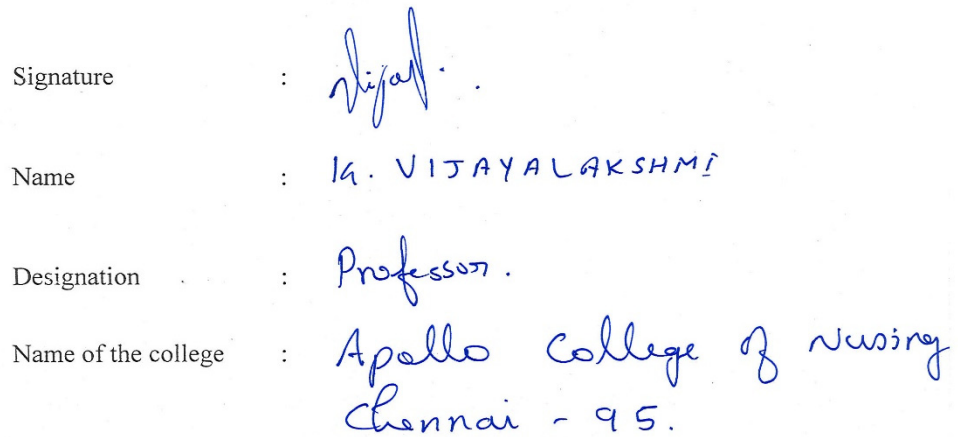 Signature :
Name : K. VIJAYALAKSHMI
Designation : Professor.
Name of the college : Apollo College of Nursing
Chennai - 95.